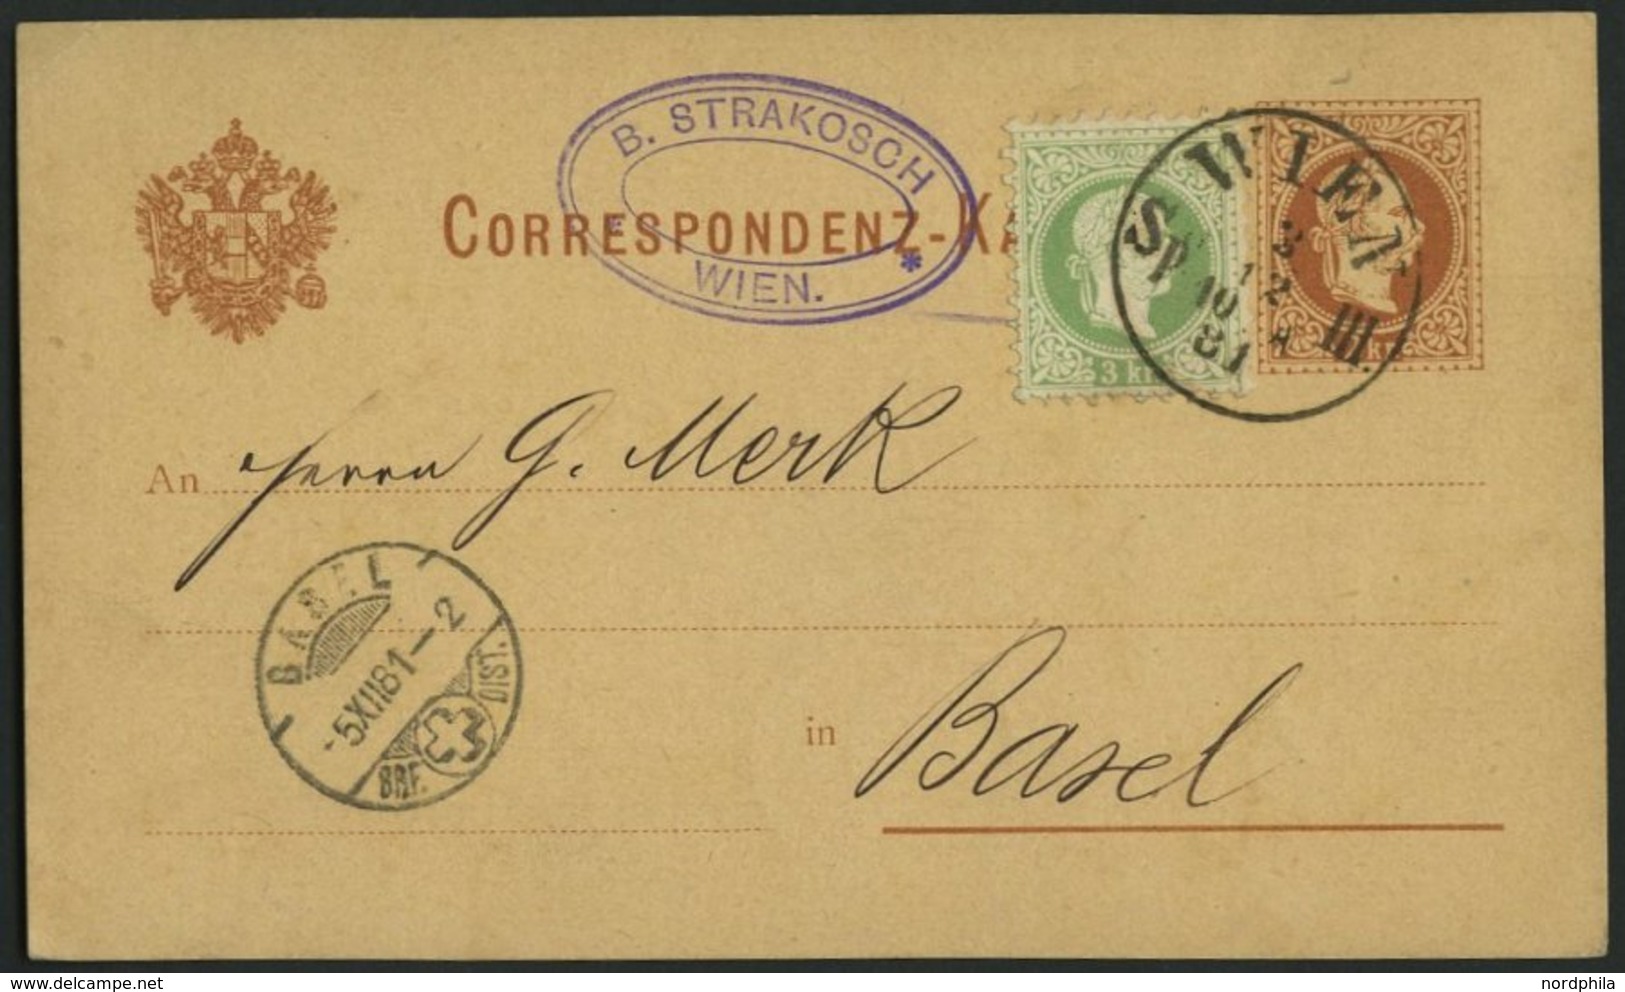 B. STRAKOSCH
WIEN.
CORRESPONDENZ-KA
3 kr
WIEN
3
12
10
81
III.
kr
An Herrn G. Merk
BASEL
-5XII81-2
BRF.
DIST.
in Basel
nordphila